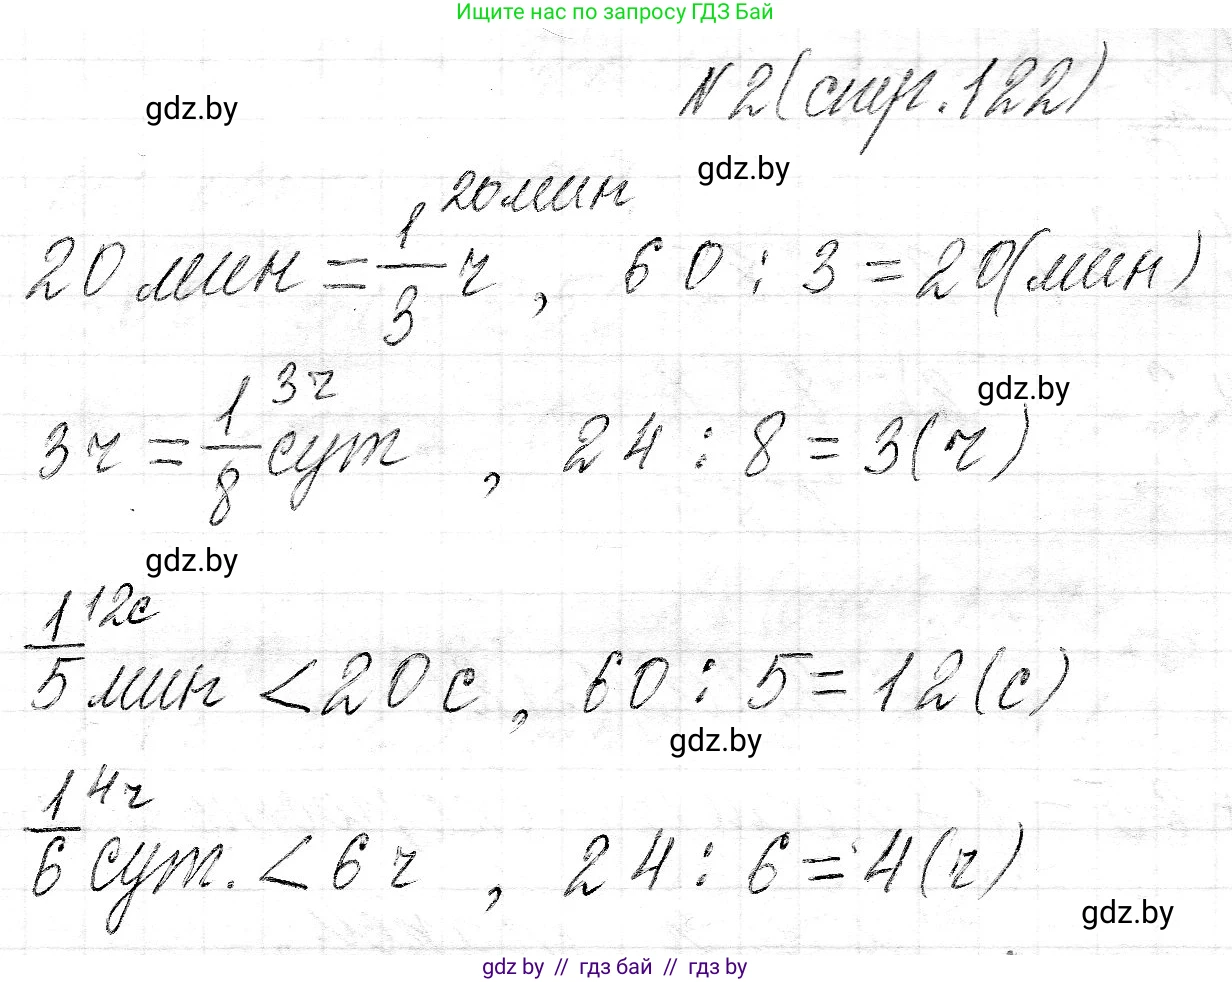 Ищите нас по запросу ГДЗ Бай
№2(стр.122)
gdz.by
gdz.by
20 мин
20 мин = 1/3 ч, 60 : 3 = 20(мин)
3 ч
gdz.by
3 ч = 1/8 сут, 24 : 8 = 3(ч)
gdz.by
12с
1/5 мин < 20 с, 60 : 5 = 12(с)
gdz.by
4 ч
1/6 сут. < 6 ч, 24 : 6 = 4(ч)
gdz.by
gdz by // гдз бай // гдз by